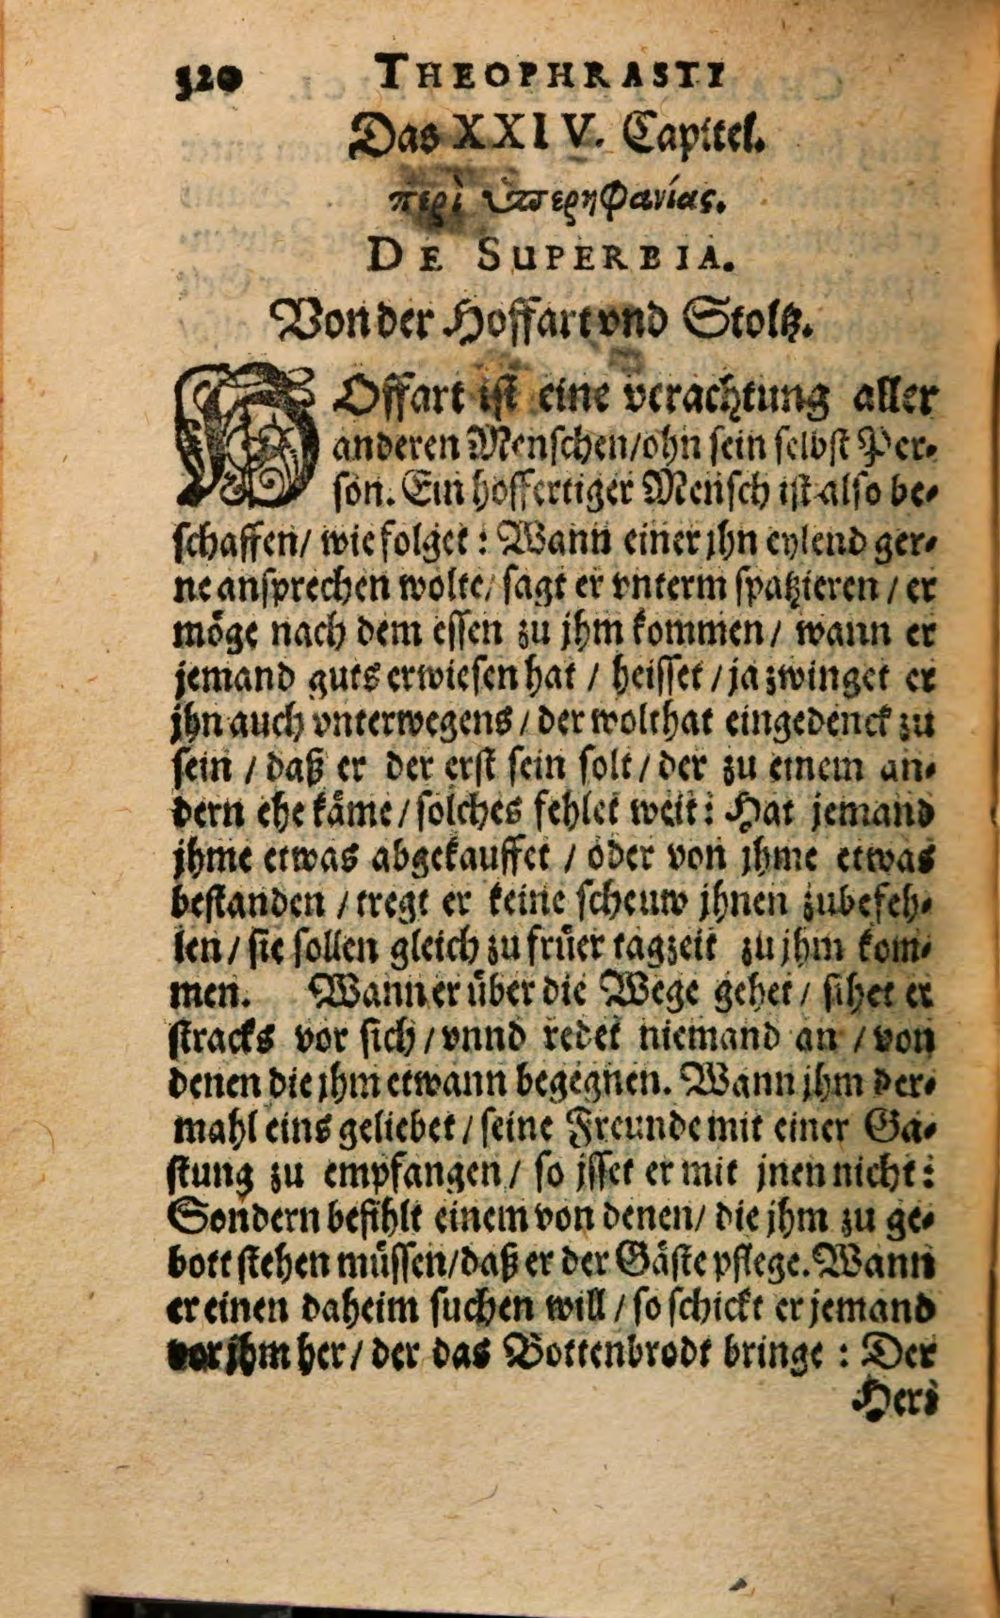 320 THEOPHRASTI
Das XXIV. Capittel.
περὶ ὑπερηφανίας.
DE SUPERBIA.
Von der Hoffart vnd Stoltz.
HOffart ist eine verachtung aller
anderen Menschen/ohn sein selbst Per-
son. Ein hoffertiger Mensch ist also be-
schaffen/ wie folget: Wann einer jhn eylend ger-
ne ansprechen wolte/ sagt er vnterm spatzieren / er
möge nach dem essen zu jhm kommen / wann er
jemand guts erwiesen hat / heisset / ja zwinget er
jhn auch vnterwegens / der wolthat eingedenck zu
sein / daß er der erst sein solt / der zu einem an-
dern ehe käme / solches fehlet weit: Hat jemand
jhme etwas abgekauffet / oder von jhme etwas
bestanden / tregt er keine scheuw jhnen zubefeh-
len / sie sollen gleich zu früer tagzeit zu jhm kom-
men. Wann er über die Wege gehet / sihet er
stracks vor sich / vnnd redet niemand an / von
denen die jhm etwann begegnen. Wann jhm der-
mahl eins geliebet / seine Freunde mit einer Ga-
stung zu empfangen / so jsset er mit jnen nicht:
Sondern befihlt einem von denen/ die jhm zu ge-
bott stehen müssen/daß er der Gäste pflege. Wann
er einen daheim suchen will / so schickt er jemand
vor jhm her / der das Bottenbrodt bringe : Der
Herr